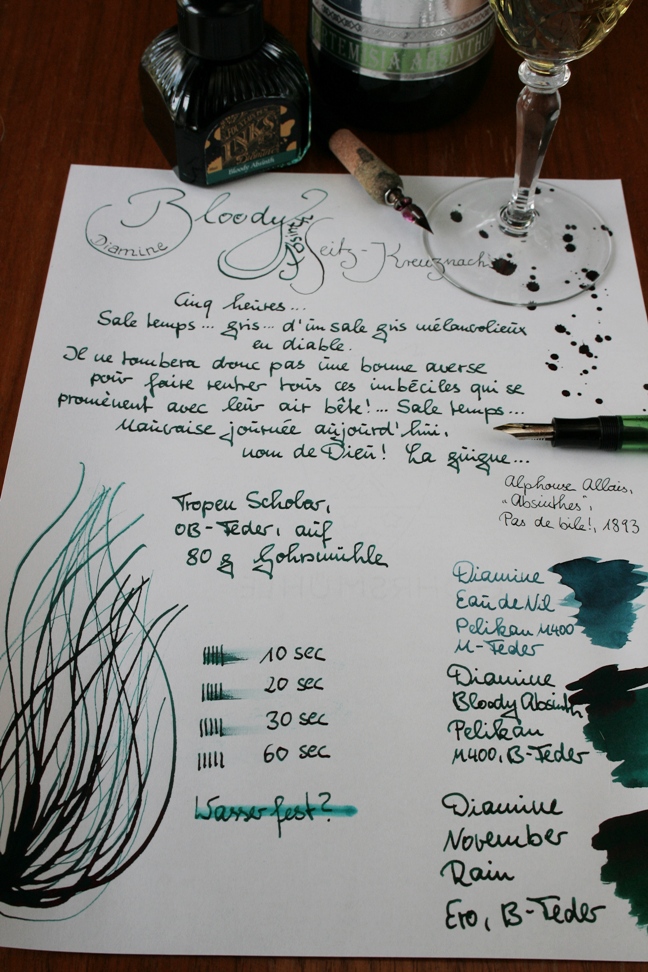 Bloody?
Diamine
Seitz-Kreuznach
Cinq heures...
Sale temps... gris... d'un sale gris mélancolieux
en diable.
Il ne tombera donc pas une bonne averse
pour faire rentrer tous ces imbéciles qui se
promènent avec leur air bête!... Sale temps...
Mauvaise journée aujourd'hui,
nom de Dieu! La guigne...
Alphonse Allais,
"Absinthes",
Pas de bile!, 1893
Tropen Scholar,
OB-Feder, auf
80 g Gohrsmühle
Diamine
Eau de Nil
Pelikan M400
M-Feder
Diamine
Bloody Absinth
Pelikan
M400, B-Feder
Diamine
November
Rain
E10, B-Feder
10 sec
20 sec
30 sec
60 sec
Wasserfest?